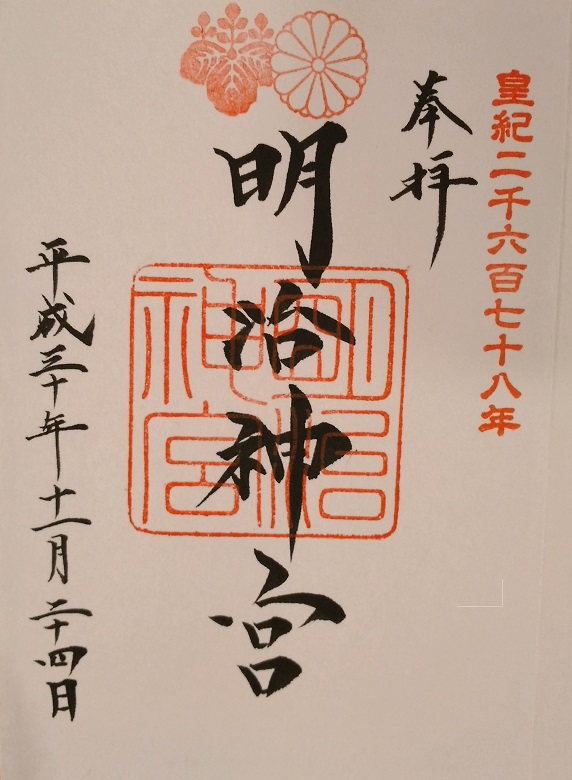 皇紀二千六百七十八年
奉拝
明治神宮
明治神宮
平成三十年十一月二十四日